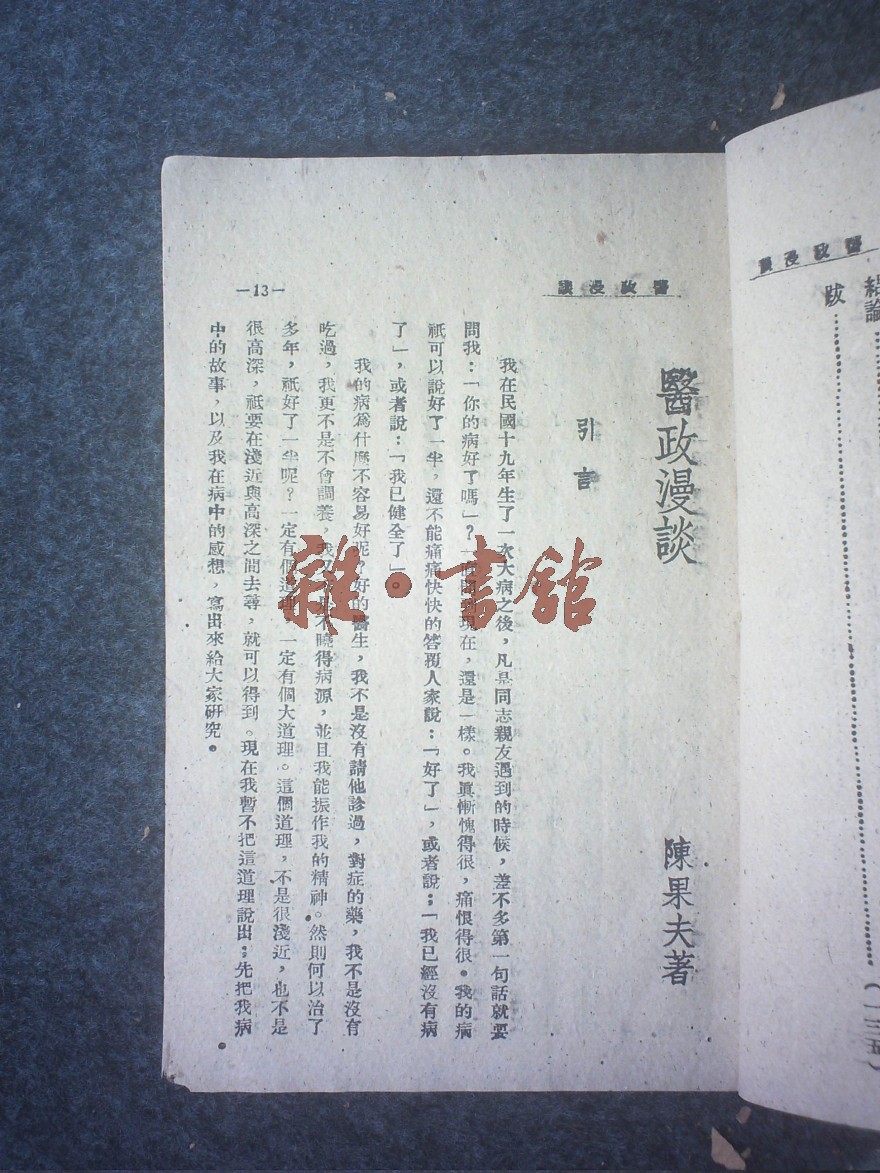 醫政漫談
結論
跋
(一三五)
醫政漫談
醫政漫談
陳果夫著
引言
我在民國十九年生了一次大病之後，凡是同志親友遇到的時候，差不多第一句話就要
問我：「你的病好了嗎」？一直問到現在，還是一樣。我眞慚愧得很，痛恨得很。我的病
祇可以說好了一半，還不能痛痛快快的答覆人家說：「好了」，或者說；「我已經沒有病
了」，或者說：「我已健全了」。
我的病爲什麼不容易好呢？好的醫生，我不是沒有請他診過，對症的藥，我不是沒有
吃過，我更不是不會調養，我又不是不曉得病源，並且我能振作我的精神。然則何以治了
多年，祇好了一半呢？一定有個道理，一定有個大道理。這個道理，不是很淺近，也不是
很高深，祇要在淺近與高深之間去尋，就可以得到。現在我暫不把這道理說出；先把我病
中的故事，以及我在病中的感想，寫出來給大家研究。
—13—
雜·書舘